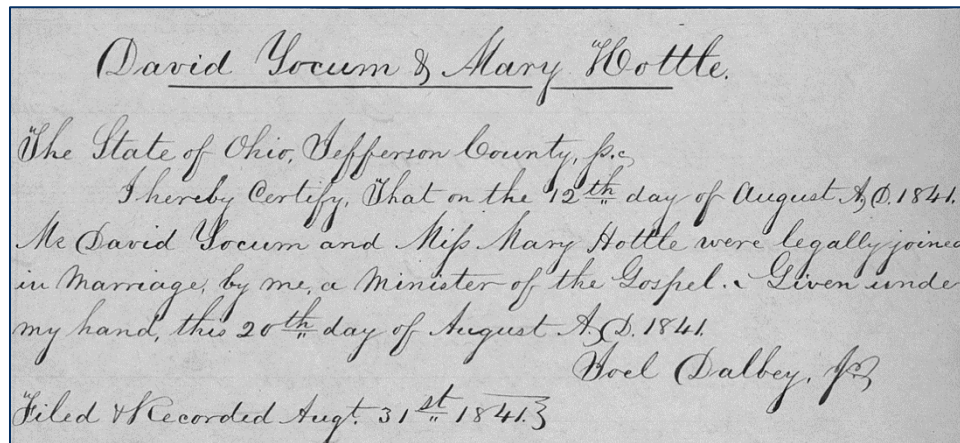 David Yocum & Mary Hottle.
The State of Ohio, Jefferson County, ss.
I hereby Certify, That on the 12th day of August A.D. 1841.
Mr David Yocum and Miss Mary Hottle were legally joined
in Marriage, by me, a Minister of the Gospel. Given unde
my hand, this 20th day of August A.D. 1841.
Joel Dalbey, Jr.
Filed & Recorded Augt. 31st 1841.